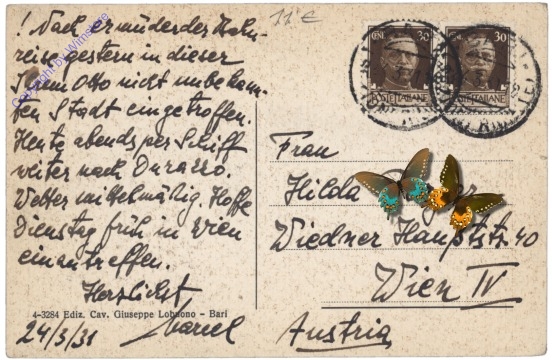 ! Nach ermüdender Bahn-
reise gestern in dieser
Otto nicht unbekann-
ten Stadt eingetroffen.
Heute abends per Schiff
weiter nach Durazzo.
Wetter mittelmäßig. Hoffe
Dienstag früh in Wien
einzutreffen.
Herzlichst
Marcel
24/3/31
4-3284 Ediz. Cav. Giuseppe Lobuono - Bari
11'€
CENT. 30
30
POSTE ITALIANE
POSTE ITALIANE
Frau
Hilda
Wiedner Hauptstr 40
Wien IV
Austria